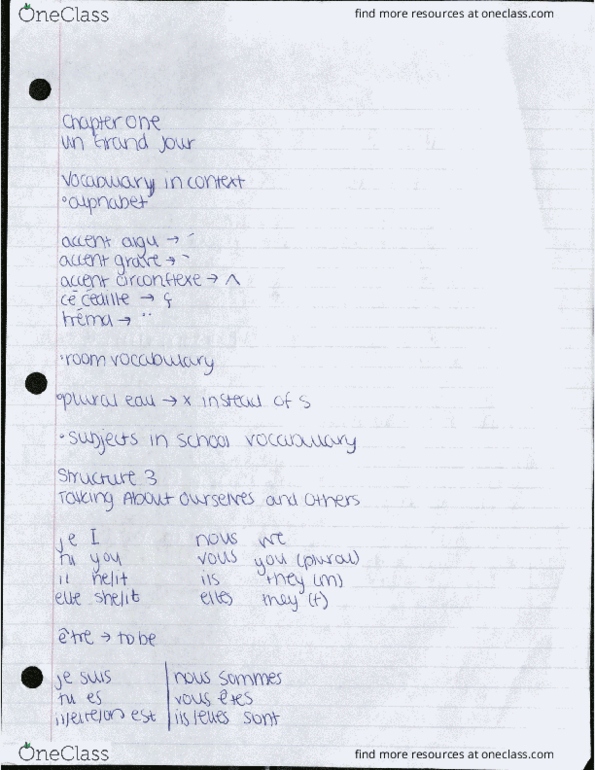 OneClass find more resources at oneclass.com
Chapter One
Un Grand Jour
Vocabulary in context
• alphabet
accent aigu → ´
accent grave → `
accent circonflexe → ^
cé cédille → ç
tréma → ¨
• room vocabulary
• plural eau → x instead of s
• subjects in school vocabulary
Structure 3
Talking About Ourselves and Others
je I nous we
tu you vous you (plural)
il he/it ils they (m)
elle she/it elles they (f)
être → to be
je suis | nous sommes
tu es | vous êtes
il/elle/on est | ils/elles sont
OneClass find more resources at oneclass.com